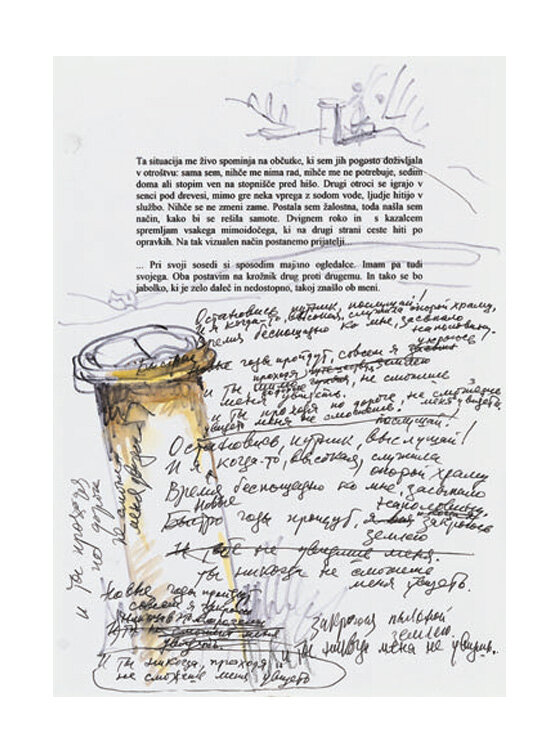 Ta situacija me živo spominja na občutke, ki sem jih pogosto doživljala
v otroštvu: sama sem, nihče me nima rad, nihče me ne potrebuje, sedim
doma ali stopim ven na stopnišče pred hišo. Drugi otroci se igrajo v
senci pod drevesi, mimo gre neka vprega z sodom vode, ljudje hitijo v
službo. Nihče se ne zmeni zame. Postala sem žalostna, toda našla sem
način, kako bi se rešila samote. Dvignem roko in s kazalcem
spremljam vsakega mimoidočega, ki na drugi strani ceste hiti po
opravkih. Na tak vizualen način postanemo prijatelji...
... Pri svoji sosedi si sposodim majhno ogledalce. Imam pa tudi
svojega. Oba postavim na krožnik drug proti drugemu. In tako se bo
jabolko, ki je zelo daleč in nedostopno, takoj znašlo ob meni.
Остановись путник, послушай!
И я когда-то, высокая, служила опорой храму,
Время беспощадно ко мне, засыпало
наполовину.
годы пройдут, совсем я
и ты не сможешь
меня увидеть.
и ты проходя по дороге, не сможешь
меня увидеть
послушай!
Остановись, путник, выслушай!
И я когда-то, высокая, служила
опорой храму
Время беспощадно ко мне, засыпало
наполовину.
Новые
Быстро годы пройдут, я закроюсь
землею
И уже не увидишь меня.
ты никогда не сможешь
меня увидеть.
и ты проходя
по дороге
не сможешь
меня увидеть
Новые годы пройдут
совсем я
и ты
меня
увидеть
и ты никогда, проходя
не сможешь меня увидеть
Закроюсь полной
землею
и ты никогда меня не увидишь..